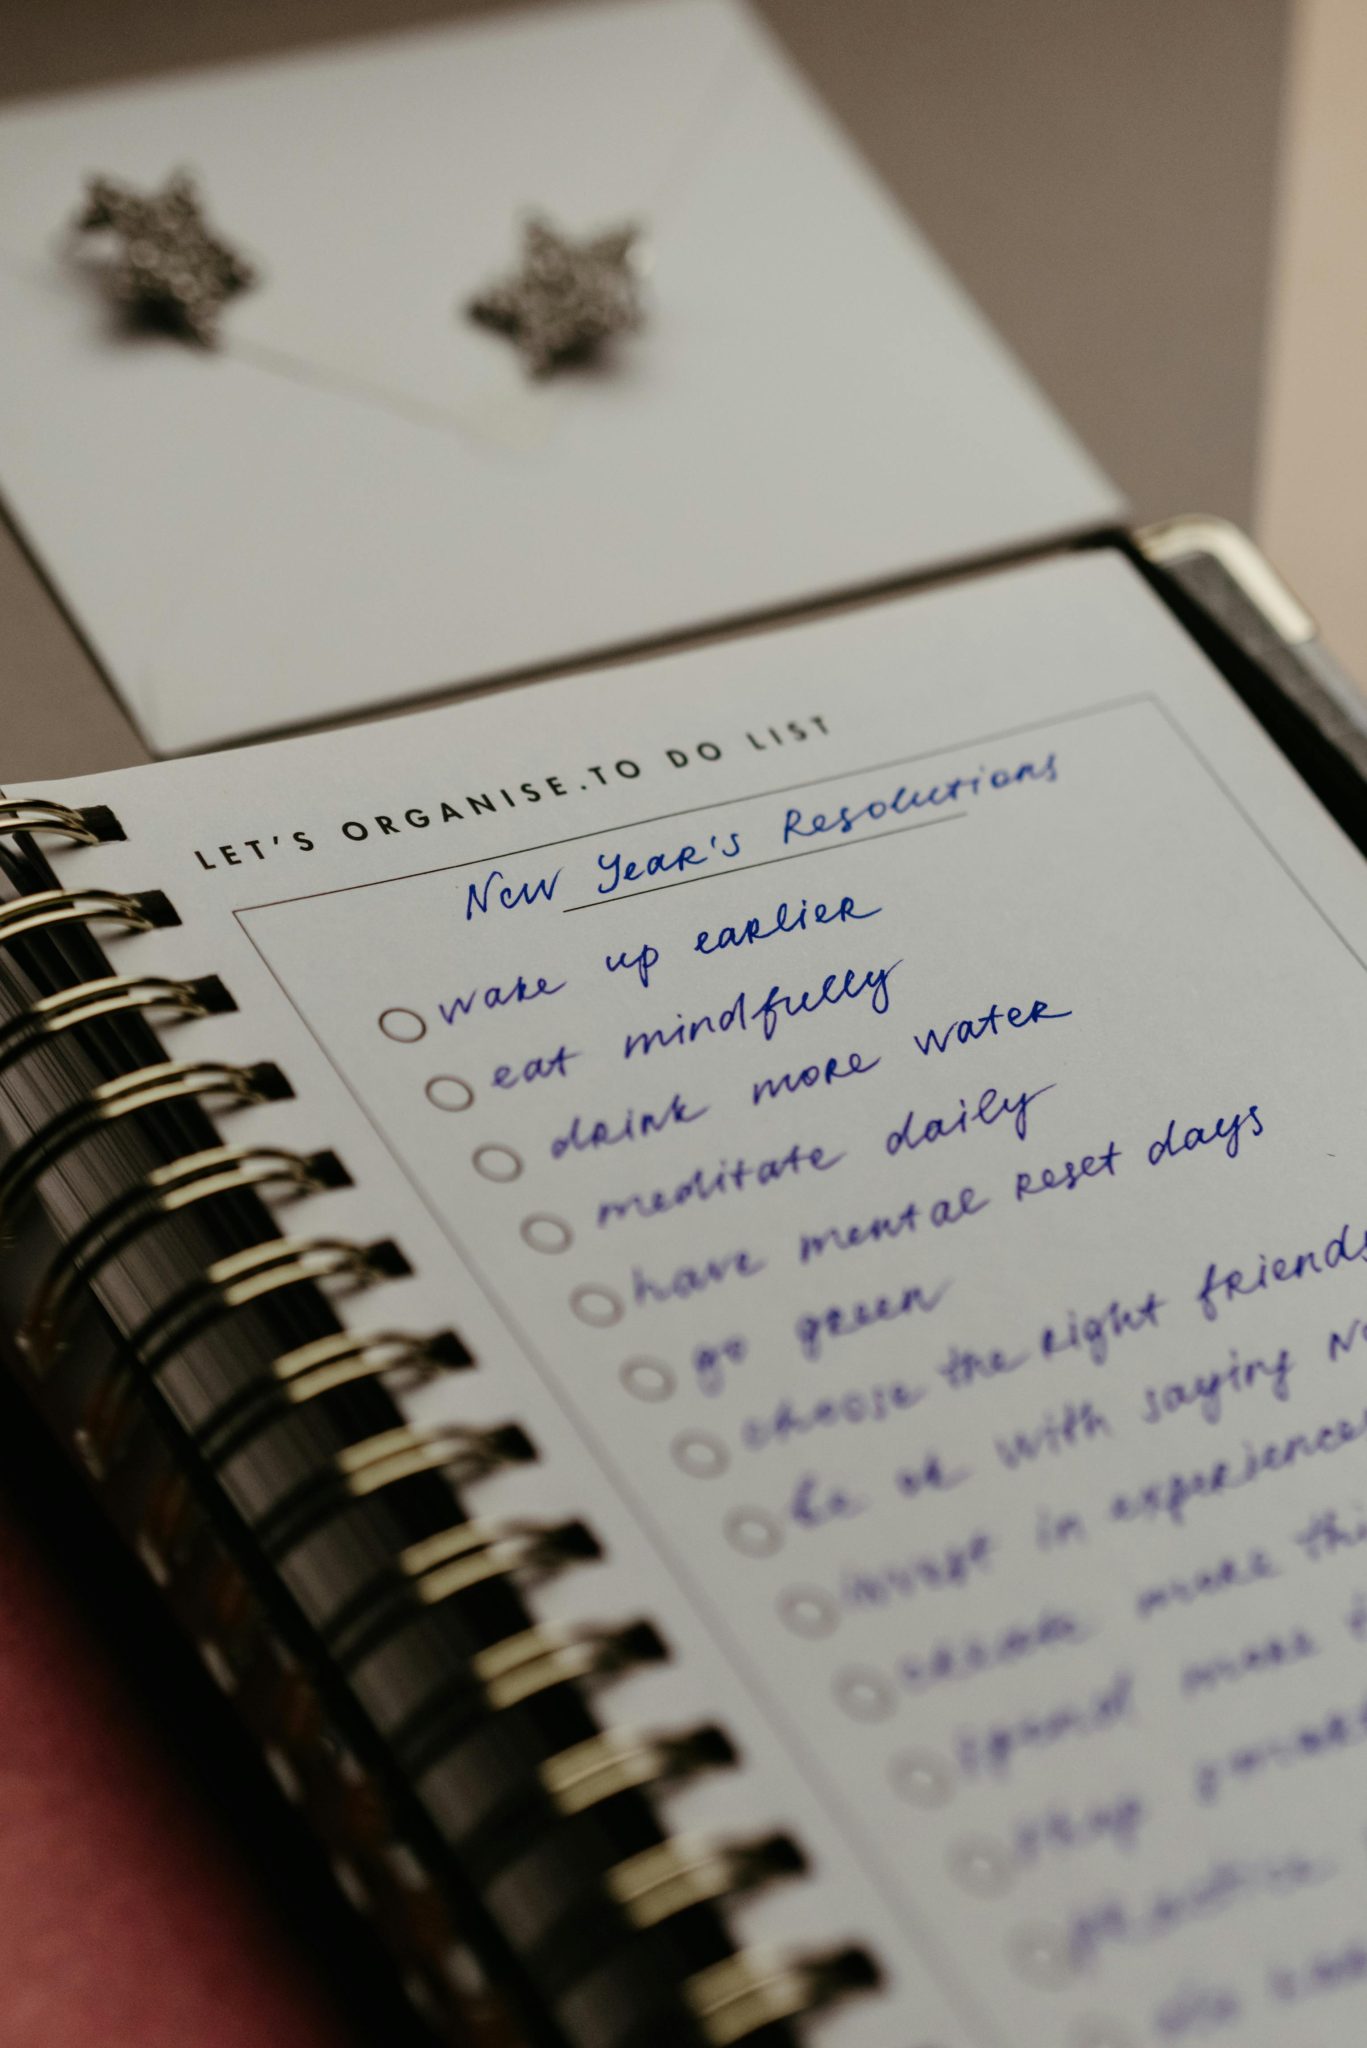 LET'S ORGANISE.TO DO LIST
New Year's Resolutions
wake up earlier
eat mindfully
drink more water
meditate daily
have mental reset days
go green
choose the right friends
be ok with saying No
invest in experiences
more
spend more
stop
practice